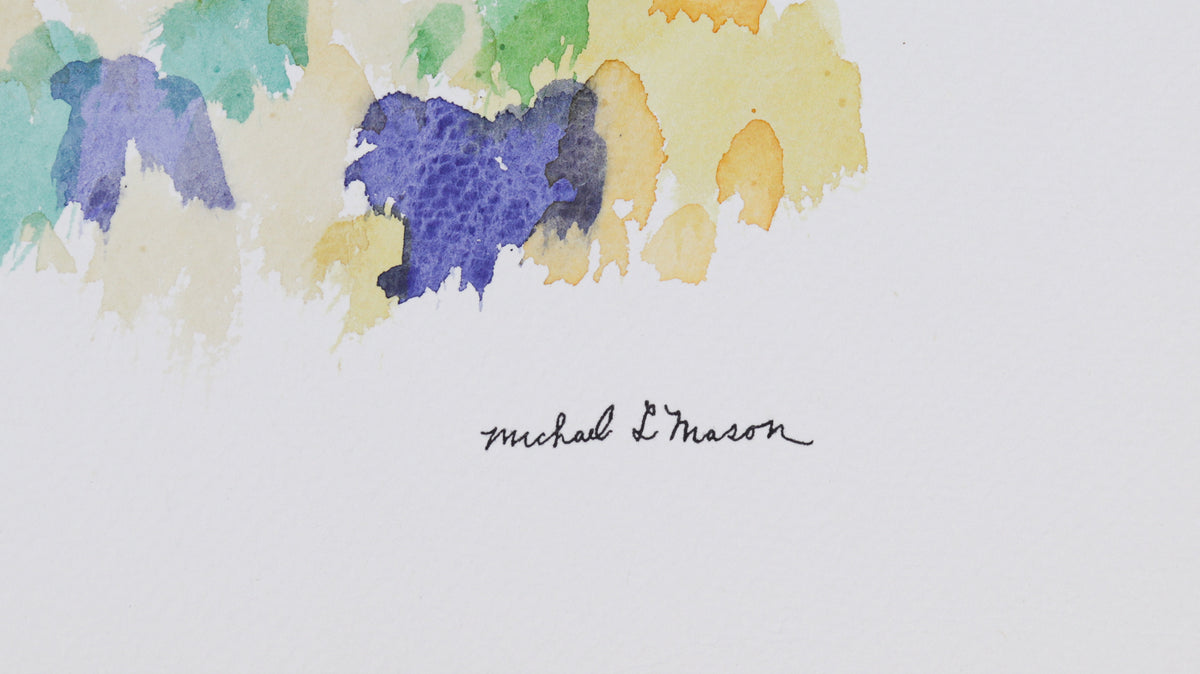 Michael L Mason